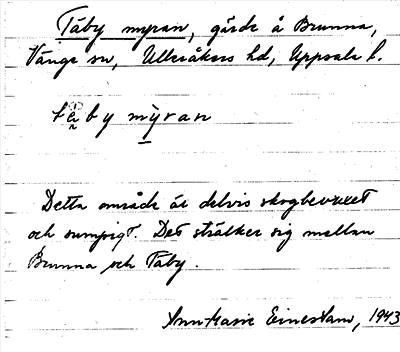 Täby myran, gärde å Brunna,
Vänge sn, Ulleråkers hd, Uppsala l.
täby myran
Detta område är delvis skogbevuxet
och sumpigt. Det sträcker sig mellan
Brunna och Täby.
Ann-Marie 1943